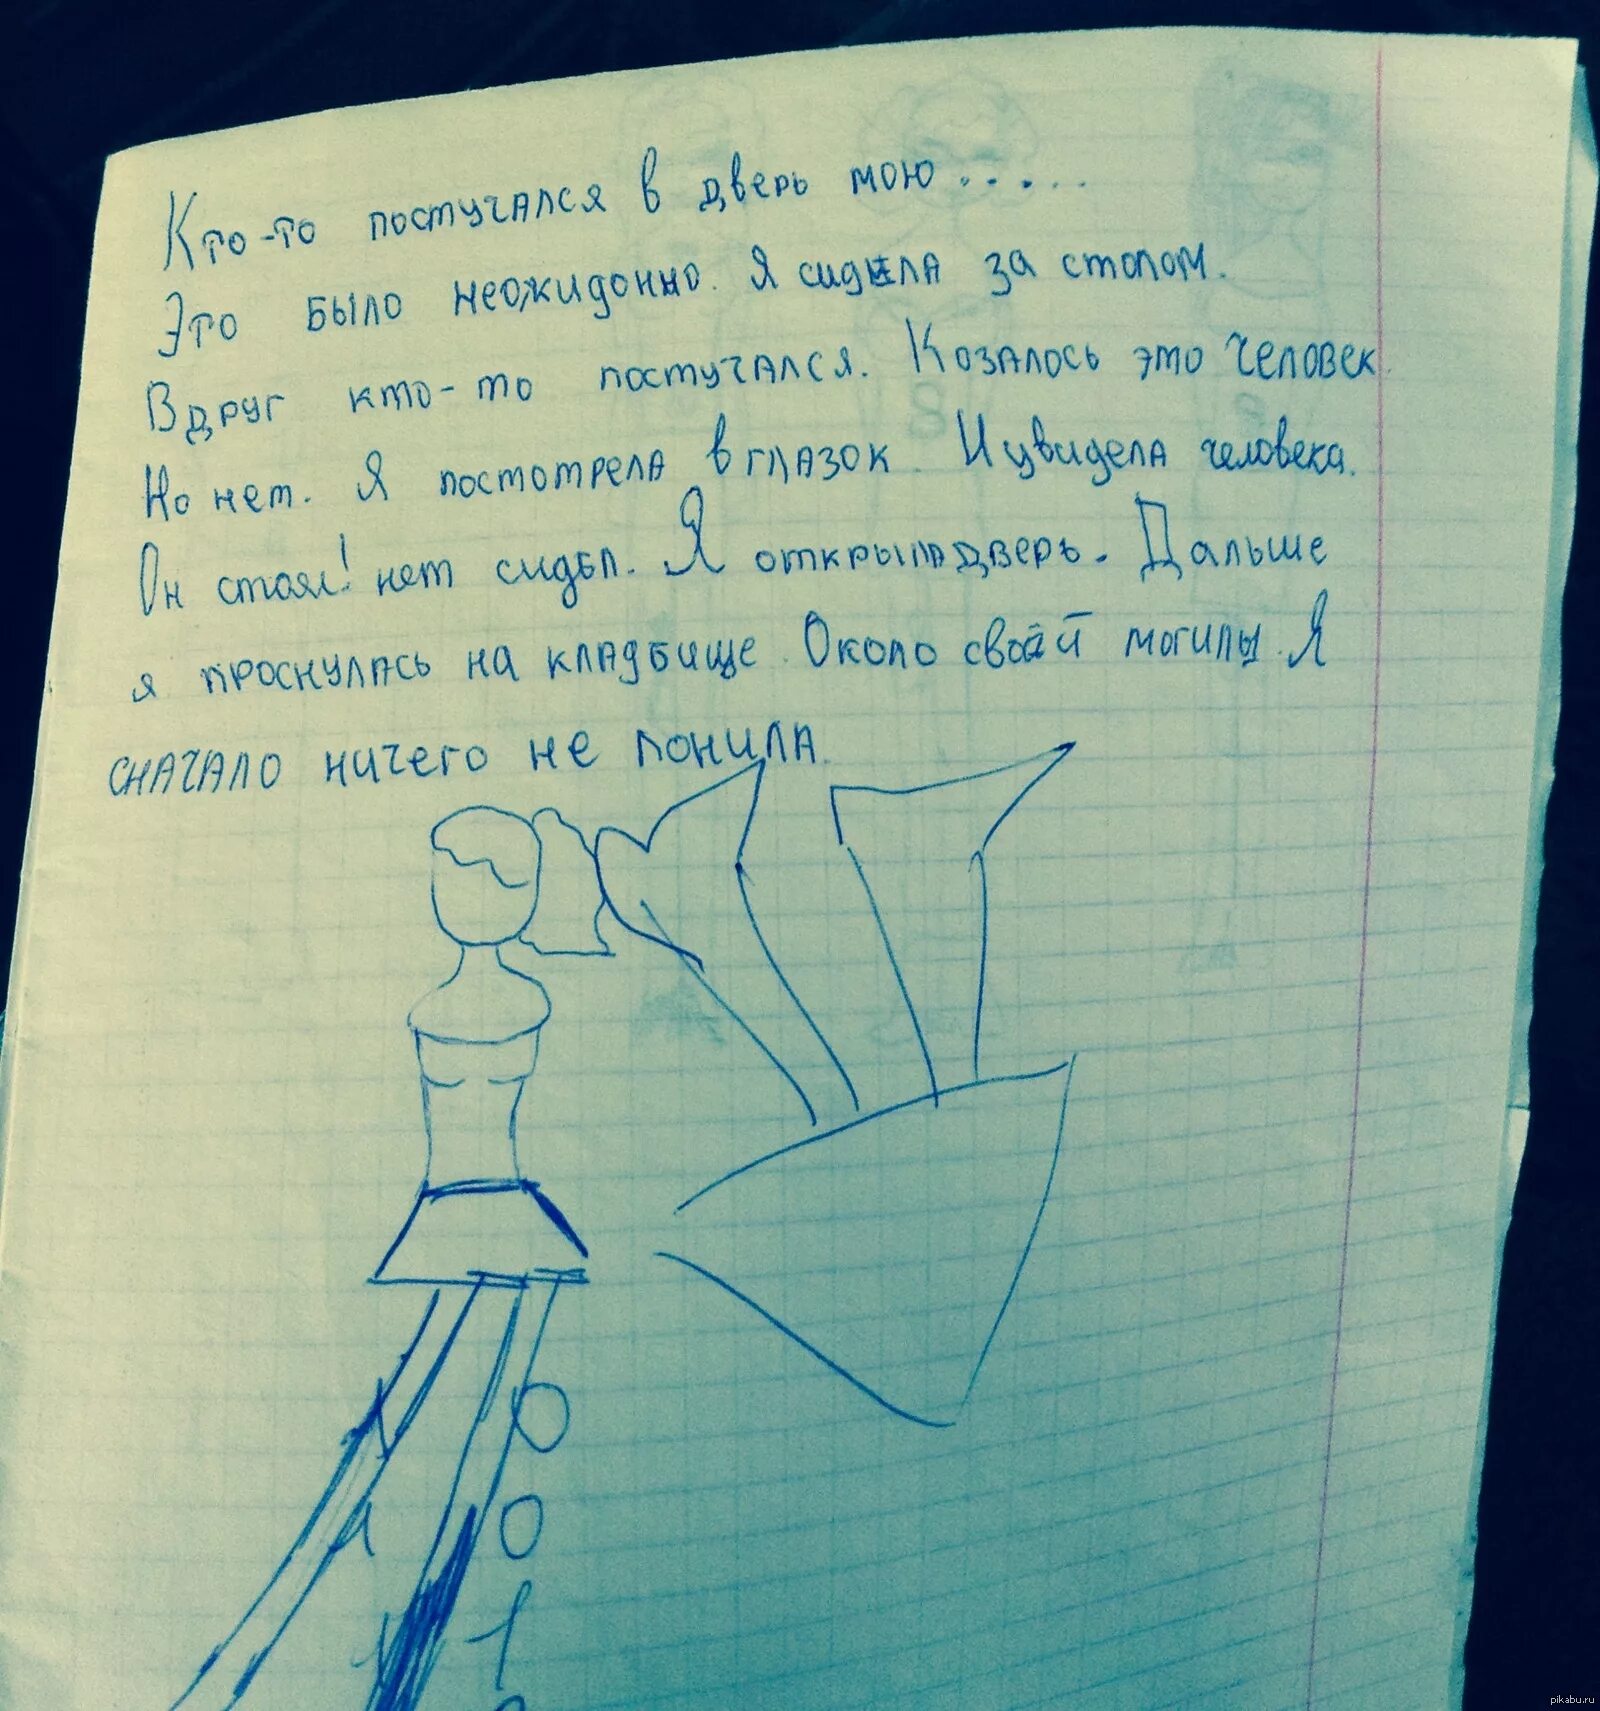 Кто-то постучался в дверь мою.....
Это было неожидонно. Я сидела за столом.
Вдруг кто-то постучался. Козалось это человек.
Но нет. Я постотрела в глазок. И увидела человека.
Он стоял! нет сидел. Я открыла дверь. Дальше
я проснулась на кладбище. Около свой могилы. Я
сначало ничего не понила.
pikabu.ru